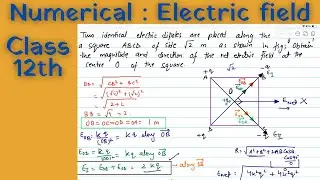 Numerical : Electric field
Class
12th
Two identical electric dipoles are placed along the
a square ABCD of side √2 m as shown in fig: Obtain
the magnitude and direction of the net electric field at the
centre O of the square
DB = √CB² + BC²
= √(√2)² + (√2)²
= √2+2
BB = √4 = 2
OB = OC = OD = OA = 1 m
= kq along OB
along OB
= 2kq
along OB
A
+q
√2
B
-q
O
E₁
E net
X
+q
-q
E₂
R = √A² + B² + 2AB cosθ
cos 90°
E net = √4k²q² + 4k²q²